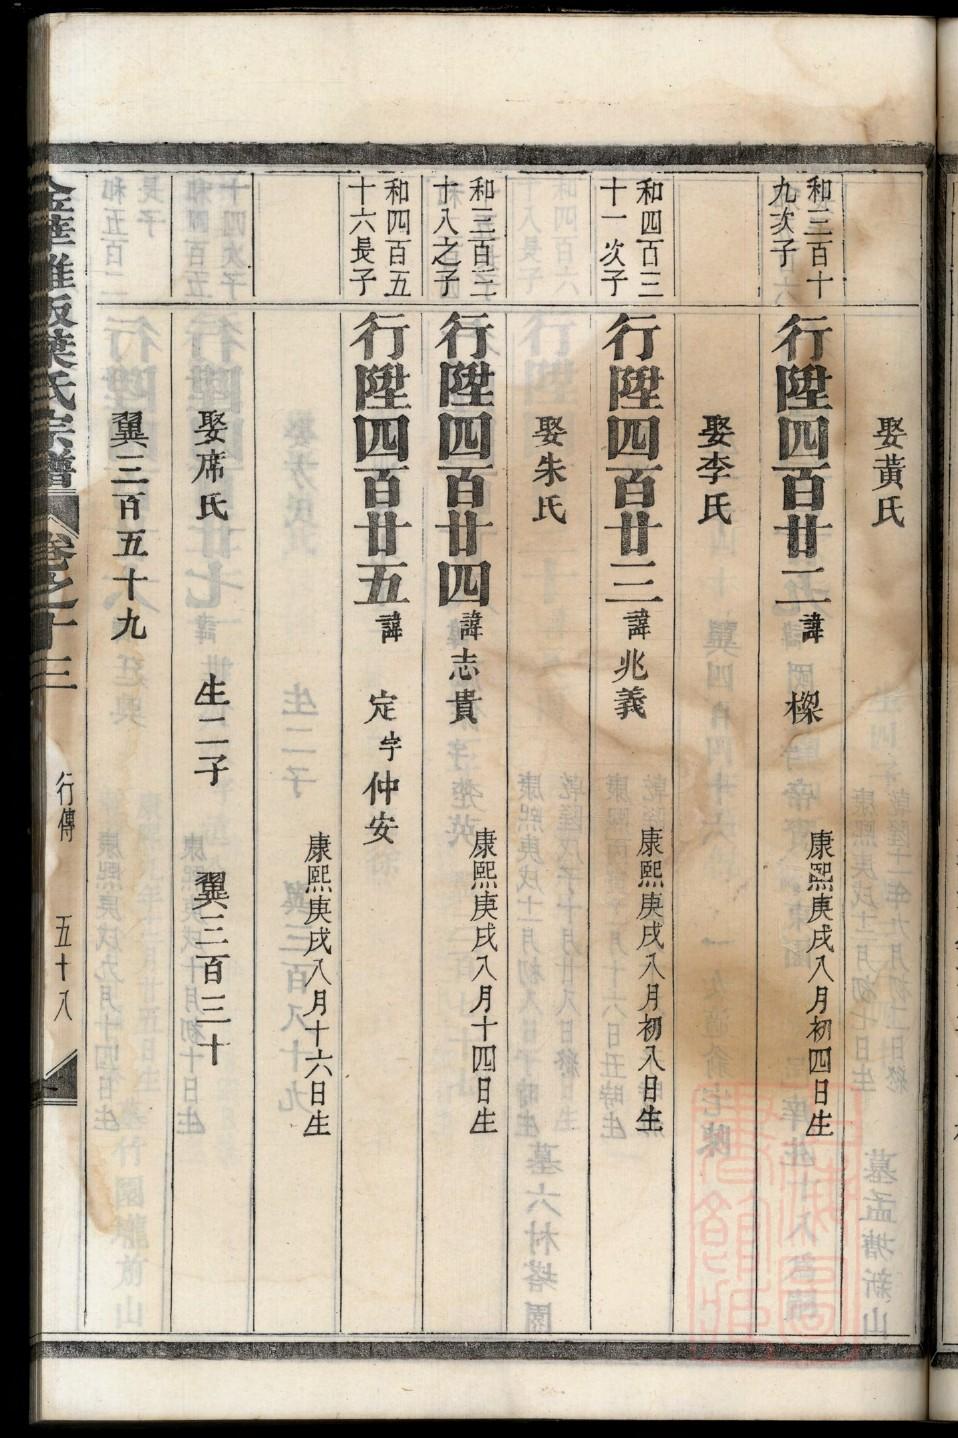 娶黃氏
和三百十
九次子
行陞四百廿二諱 樑 康熙庚戌八月初四日生
娶李氏
和四百三
十一次子
行陞四百廿三諱兆義 康熙庚戌八月初八日生
娶朱氏
和三百二
十八之子
行陞四百廿四諱志貴 康熙庚戌八月十四日生
和四百五
十六長子
行陞四百廿五諱 定字仲安
康熙庚戌八月十六日生
娶席氏 生二子 翼三百三十
翼三百五十九
葉氏宗譜 卷之十三 行傳 五十八